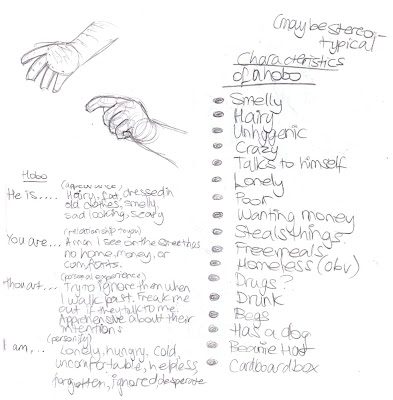 (may be stereo-
typical
Characteristics
of a hobo
Smelly
Hairy
Unhygenic
Crazy
Talks to himself
Lonely
Poor
Wanting money
Steals things.
Free meals
Homeless (obv)
Drugs?
Drunk
Begs
Has a dog
Beanie Hat
Cardboard box
Hobo
(appearance)
He is.... Hairy, fat, dressed in
old clothes, smelly,
sad looking, scary
(relationship to you)
You are... A man I see on the streets
no home, money, or
comforts.
(personal experience)
Thou art... Try to ignore them when
I walk past. Freak me
out if they talk to me.
Apprehensive about their
intentions
(personify)
I am,... Lonely, hungry, cold,
uncomfortable, helpless,
forgotten, ignored, desperate